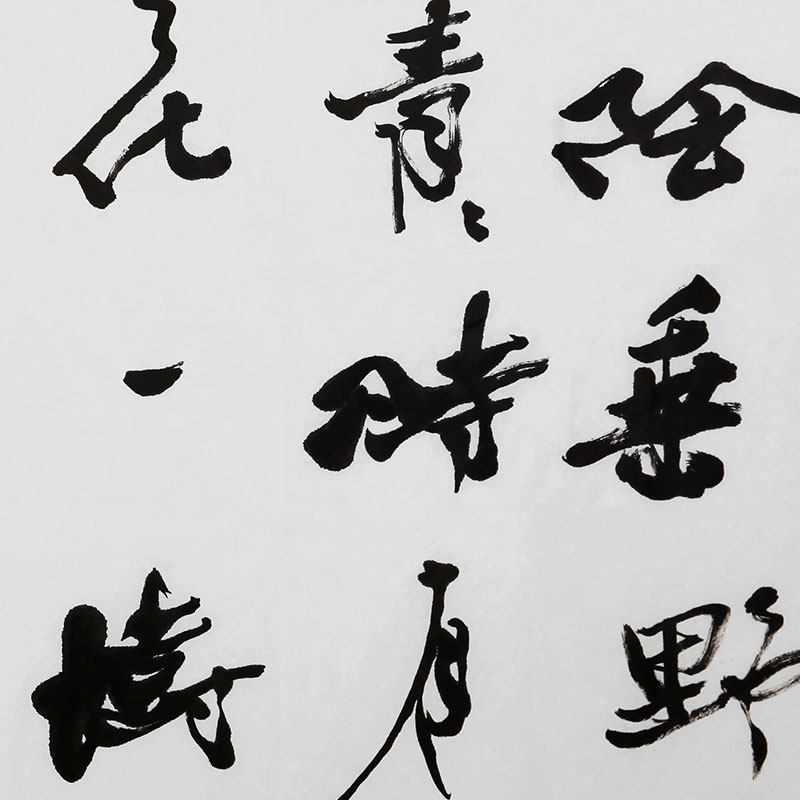 陰垂野
青〻時有
花一樹